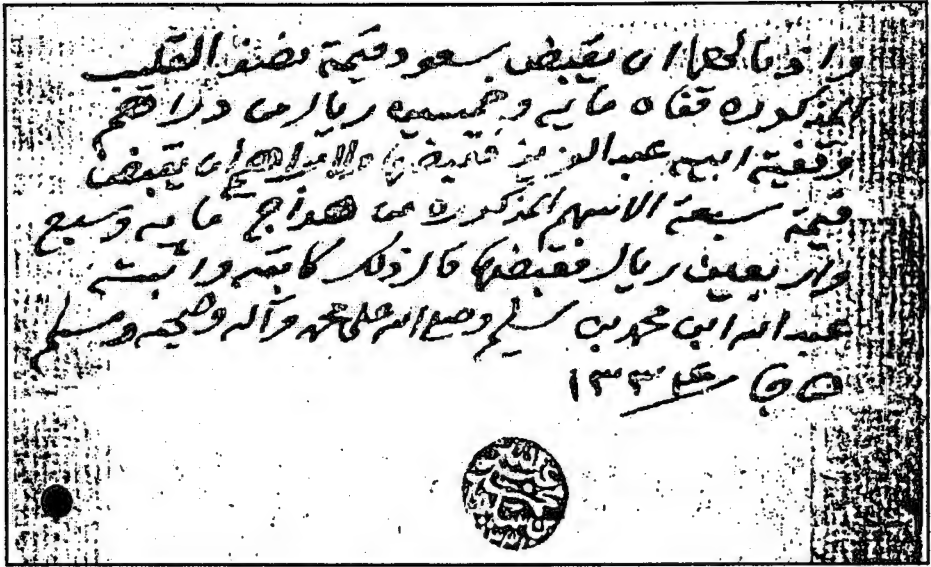 واذنا لهما ان يقبض سعود قيمة نصف القليب
المذكوره قفاه مايه وخمسين ريال من دراهم
وقفية ابيه عبدالعزيز فقبضها ولابراهيم ان يقبض
قيمة سبعة الاسهم المذكوره من هداج مايه وسبع
واربعين ريال فقبضها قال ذلك كاتبه واثبته
عبدالله ابن محمد بن سليم وصلى الله على محمد وآله وصحبه وسلم
١٣٣٤